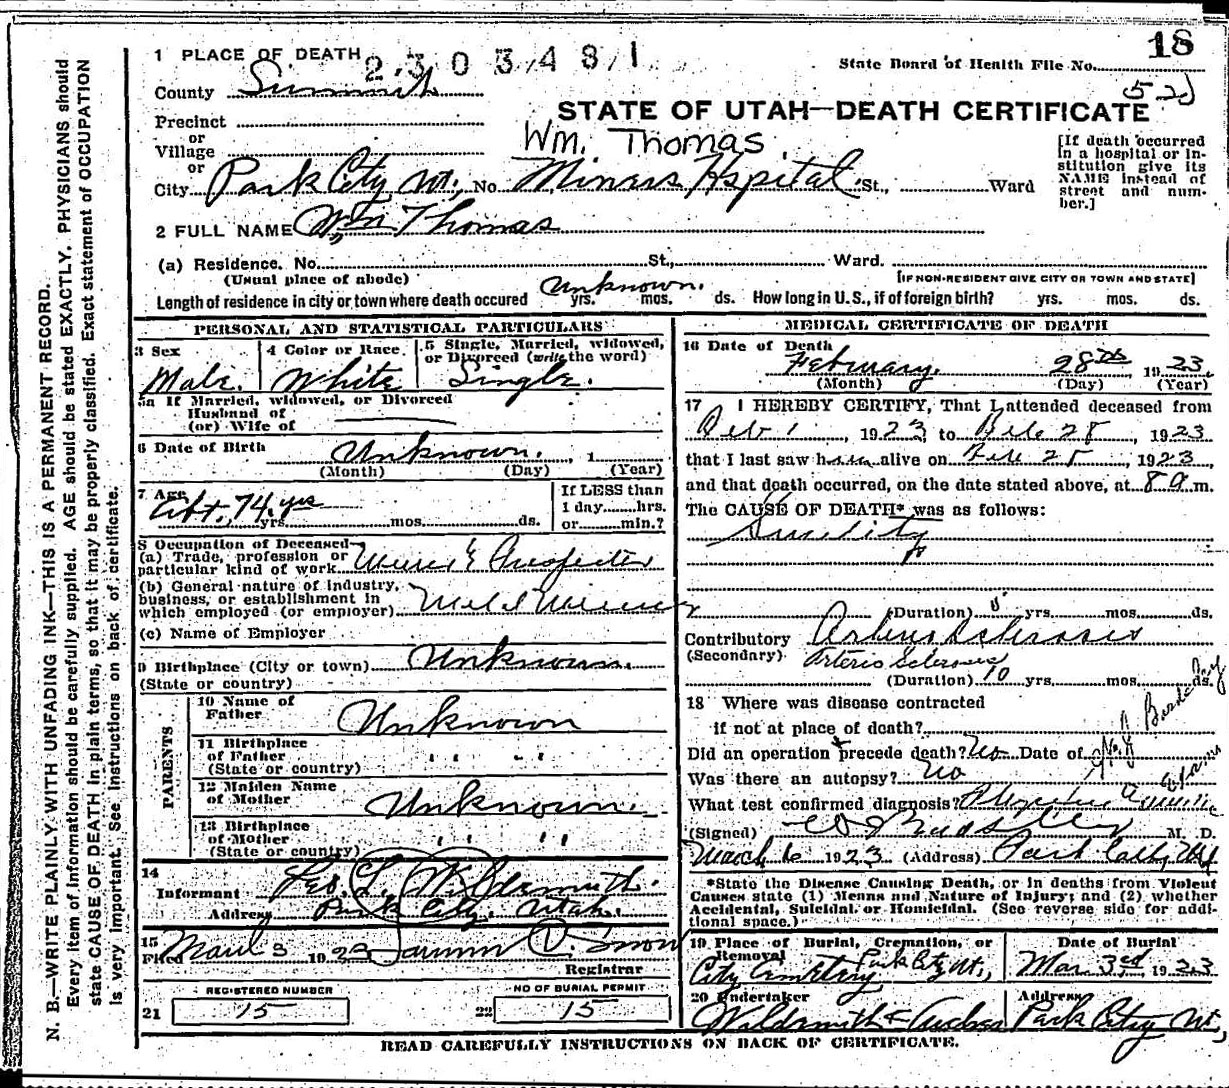 18
1 PLACE OF DEATH 2303481
State Board of Health File No.
County Summit
52
STATE OF UTAH—DEATH CERTIFICATE
Precinct
or
Village
Wm. Thomas
or
City Park City Ut., No. Miners Hspital St., Ward
[If death occurred in a hospital or institution give its NAME instead of street and number.]
2 FULL NAME Wm Thomas
(a) Residence. No. St., Ward.
(Usual place of abode) [IF NON-RESIDENT GIVE CITY OR TOWN AND STATE]
Length of residence in city or town where death occured Unknown. yrs. mos. ds. How long in U.S., if of foreign birth? yrs. mos. ds.
PERSONAL AND STATISTICAL PARTICULARS
3 Sex Male.
4 Color or Race White
5 Single, Married, widowed, or Divorced (write the word) Single.
5a If Married, widowed, or Divorced
Husband of
(or) Wife of
6 Date of Birth Unknown. , 1
(Month) (Day) (Year)
7 Age Abt. 74 yrs
yrs. mos. ds.
If LESS than
1 day hrs.
or min.?
8 Occupation of Deceased
(a) Trade, profession or
particular kind of work Miner & Prospector
(b) General nature of industry,
business, or establishment in
which employed (or employer) Metal Mining
(c) Name of Employer
9 Birthplace (City or town) Unknown.
(State or country)
PARENTS
10 Name of
Father Unknown
11 Birthplace
of Father " "
(State or country)
12 Maiden Name
of Mother Unknown.
13 Birthplace
of Mother " "
(State or country)
14
Informant Geo. L. Wildsmith.
Address Park City, Utah.
15
Filed March 3 1923 V. Snow
Registrar
REGISTERED NUMBER
21 15
NO OF BURIAL PERMIT
22 15
MEDICAL CERTIFICATE OF DEATH
16 Date of Death
February. 28th 1923.
(Month) (Day) (Year)
17 I HEREBY CERTIFY, That I attended deceased from
Feb 1, 1923 to Feb 28, 1923
that I last saw him alive on Feb 28, 1923,
and that death occurred, on the date stated above, at 8 a.m.
The CAUSE OF DEATH* was as follows:
Senility
(Duration) yrs. mos. ds.
Contributory Arterio Sclerosis
(Secondary) Arterio Sclerosis
(Duration) 10 yrs. mos. ds.
18 Where was disease contracted
if not at place of death?
Did an operation precede death? No Date of
Was there an autopsy? No
What test confirmed diagnosis?
(Signed) M. D.
March 6 1923 (Address) Park City, Ut
*State the Disease Causing Death, or in deaths from Violent
Causes state (1) Means and Nature of Injury; and (2) whether
Accidental, Suicidal or Homicidal. (See reverse side for additional space.)
19 Place of Burial, Cremation, or
Removal Park City Ut.,
City Cemetery
Date of Burial
Mar. 3rd 1923
20 Undertaker
Wildsmith &
Address
Park City Ut,
READ CAREFULLY INSTRUCTIONS ON BACK OF CERTIFICATE.
N. B.—WRITE PLAINLY WITH UNFADING INK—THIS IS A PERMANENT RECORD.
Every item of information should be carefully supplied. AGE should be stated EXACTLY. PHYSICIANS should
state CAUSE OF DEATH in plain terms, so that it may be properly classified. Exact statement of OCCUPATION
is very important. See instructions on back of certificate.